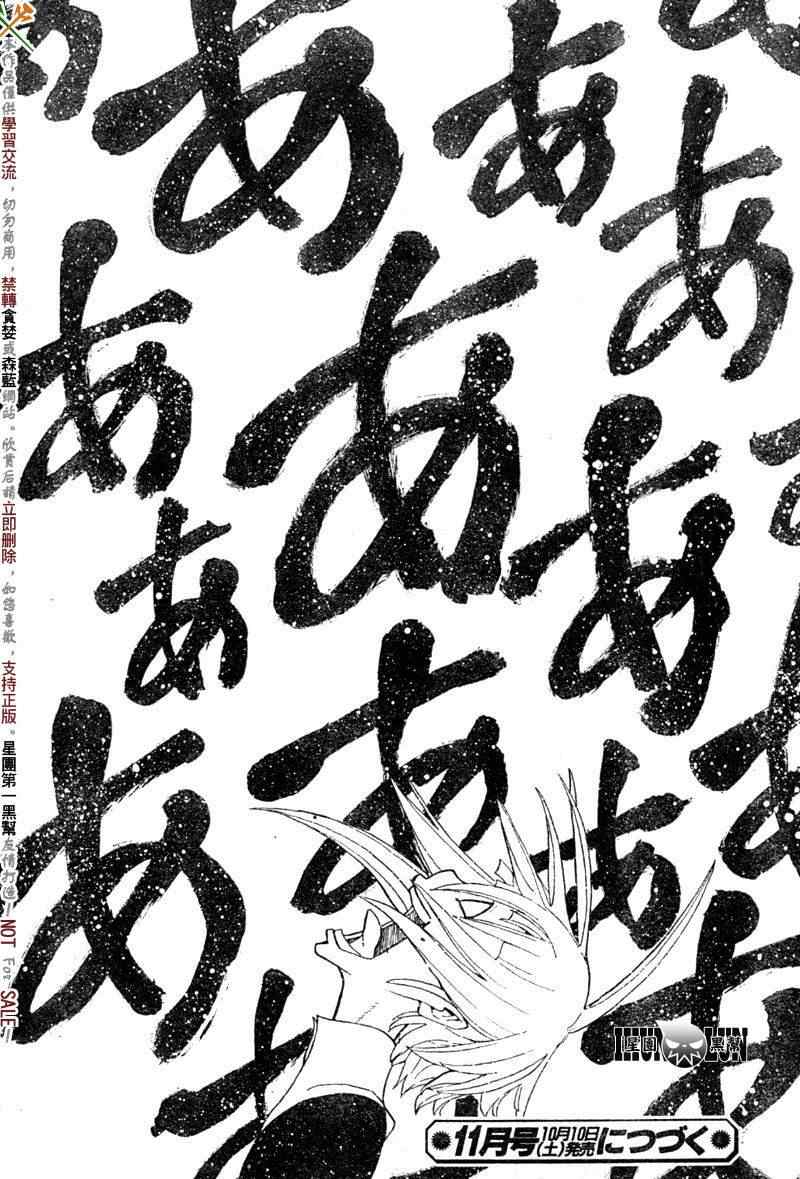 本作品僅供學習交流，切勿商用，禁轉貪婪或森藍網站。欣賞后請立即刪除，如您喜歡，支持正版。星團第一黑幫友情打造—NOT For SALE—
あ
あ
あ
あ
あ
あ
あ
あ
あ
あ
あ
あ
あ
あ
星團黑幫
11月号10月10日(土)発売につづく